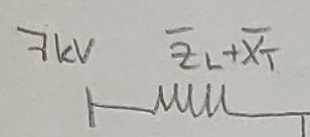 7kV Z̅L+X̅T